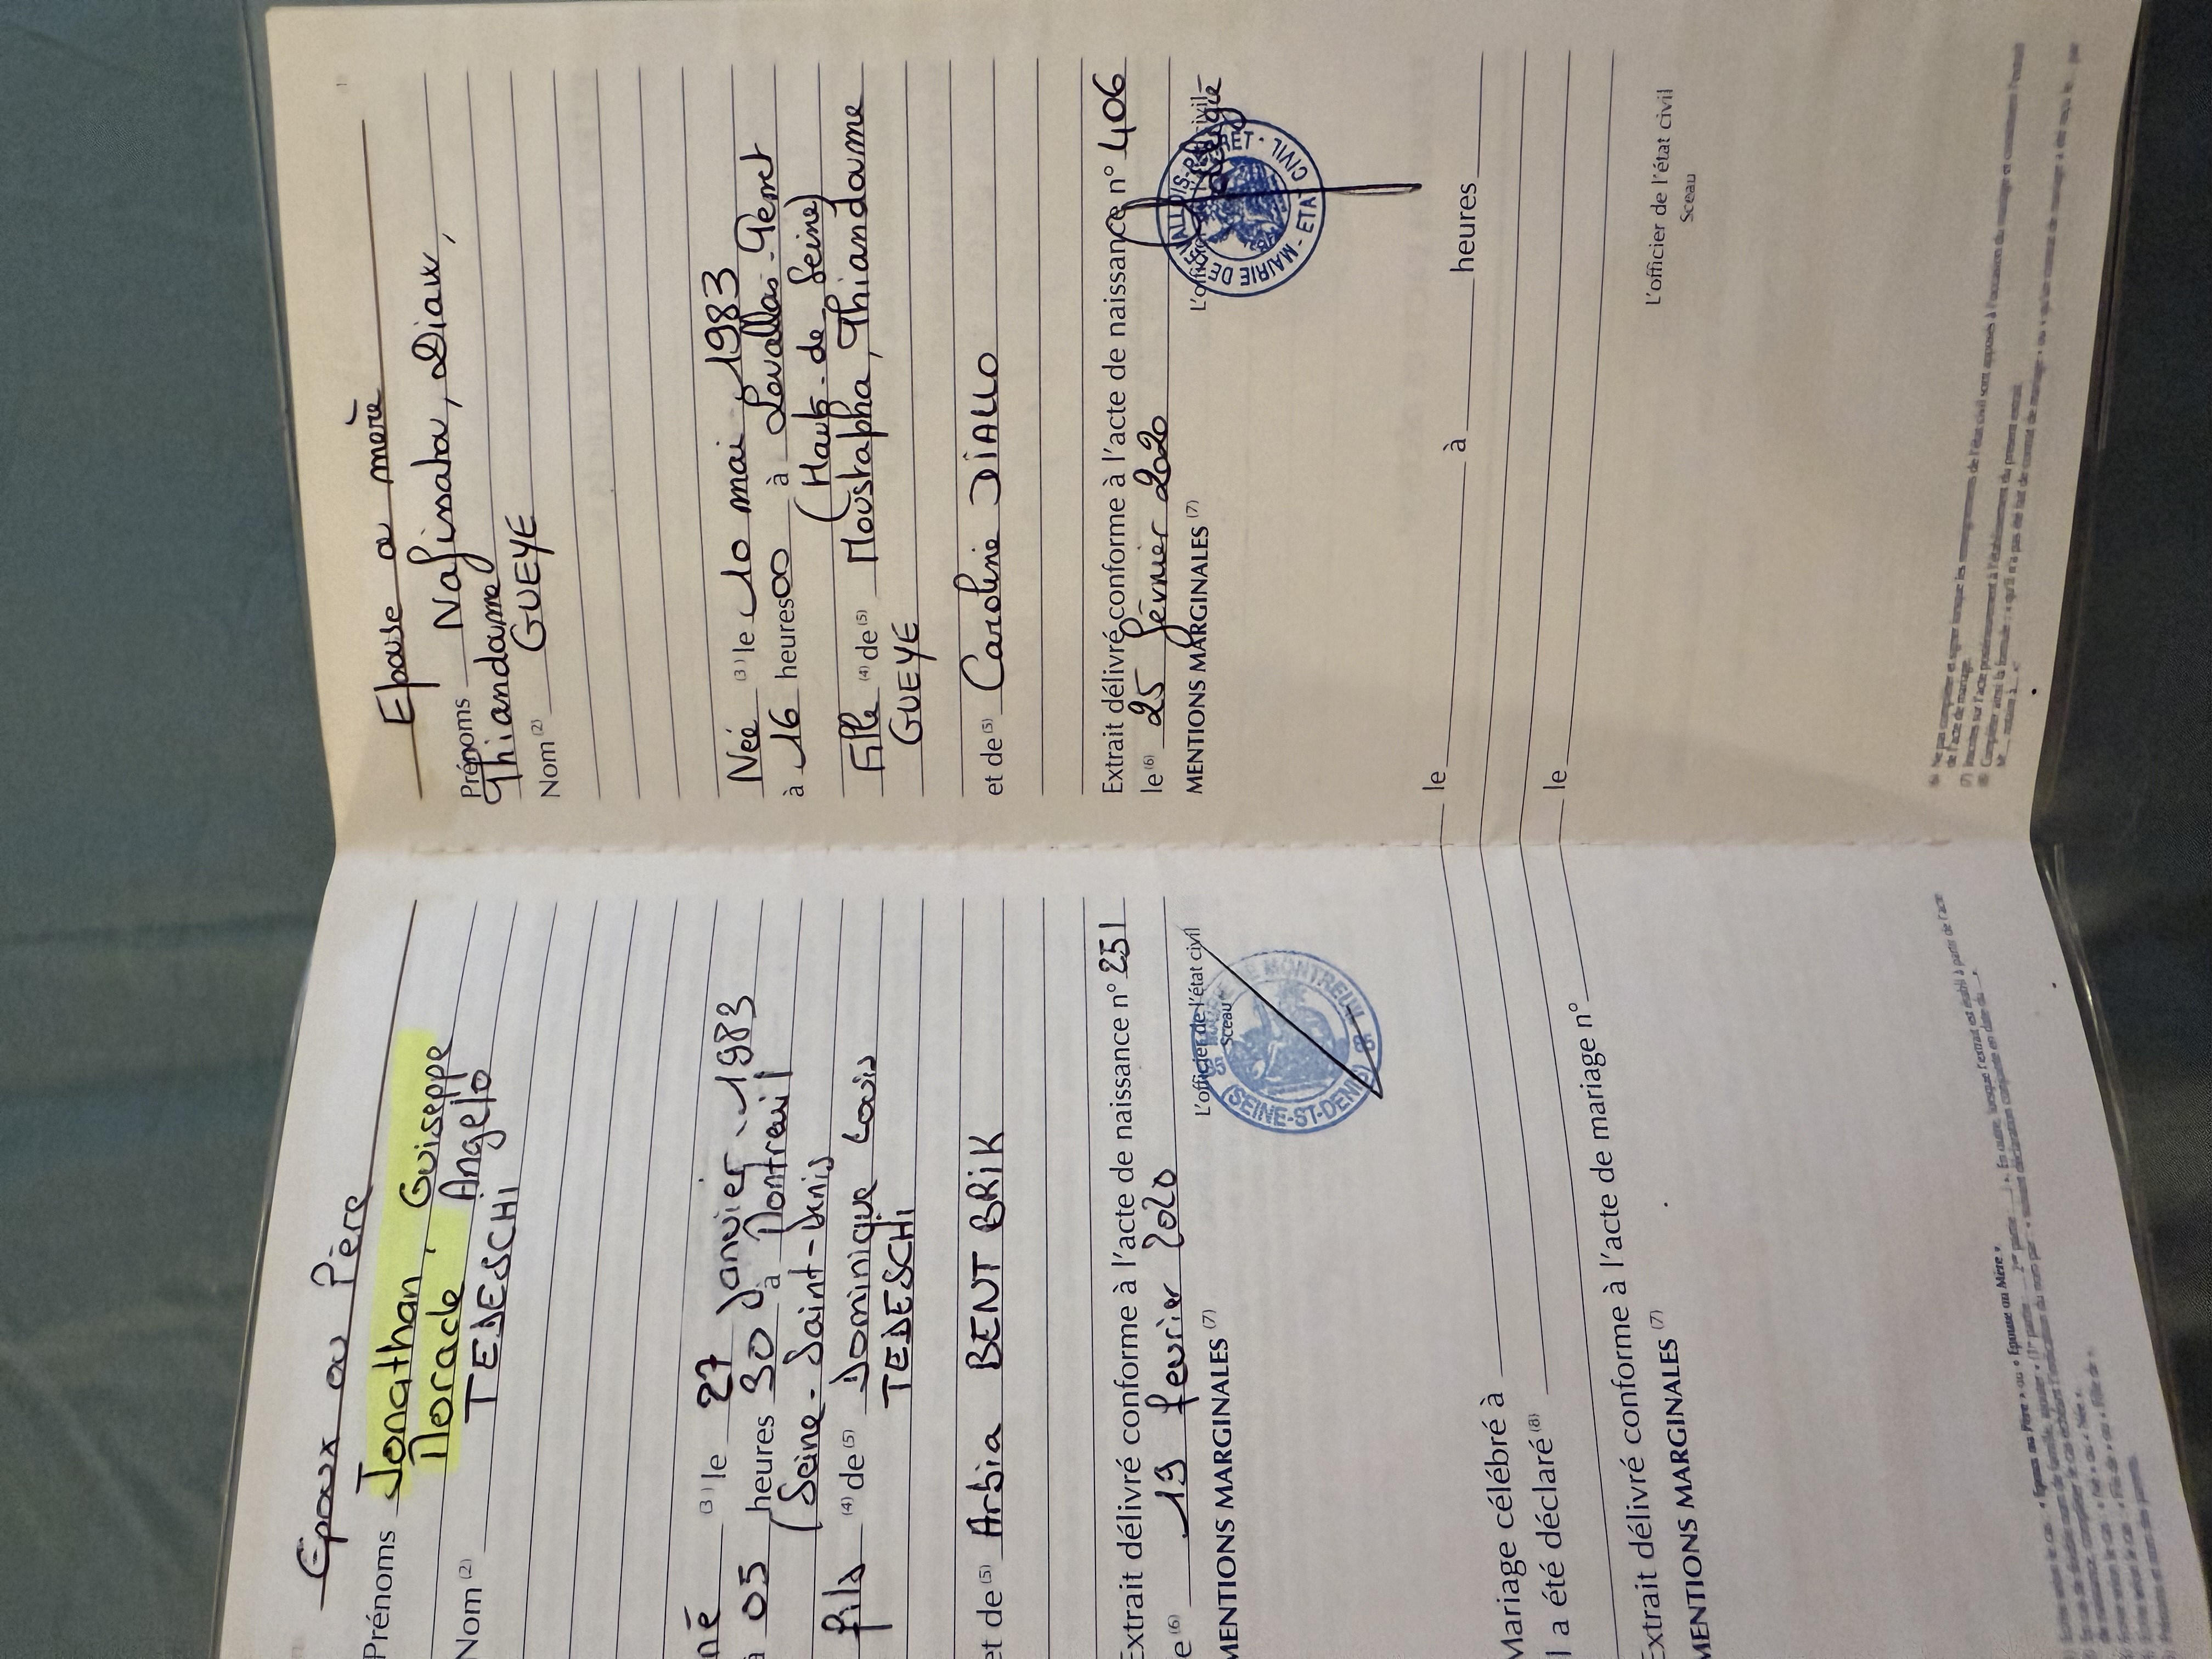 Epoux ou Père
Prénoms Jonathan, Guiseppe
Morade, Angelo
Nom (2) TEDESCHI
né (3) le 27 Janvier 1983
à 05 heures 30 à Montreuil
(Seine-Saint-Denis
fils (4) de (5) Dominique Louis
TEDESCHI
et de (5) Arbia BENT BRIK
Extrait délivré conforme à l'acte de naissance n° 251
le (6) 19 fevrier 2020
L'officier de l'état civil
Sceau
MONTREUIL
(SEINE-ST-DENIS)
MENTIONS MARGINALES (7)
Mariage célébré à le à heures
Il a été déclaré (8)
Extrait délivré conforme à l'acte de mariage n° le
MENTIONS MARGINALES (7)
Epouse ou mère
Prénoms Nafissata, Diaw,
Thiandame
Nom (2) GUEYE
Née (3) le 10 mai 1983
à 16 heures 00 à Levallois-Perret
(Hauts-de-Seine)
Fille (4) de (5) Moustapha, Thiandame
GUEYE
et de (5) Caroline DIALLO
Extrait délivré conforme à l'acte de naissance n° 406
le (6) 25 février 2020
L'officier civil
MAIRIE DE LEVALLOIS-PERRET - ETAT CIVIL
MENTIONS MARGINALES (7)
L'officier de l'état civil
Sceau